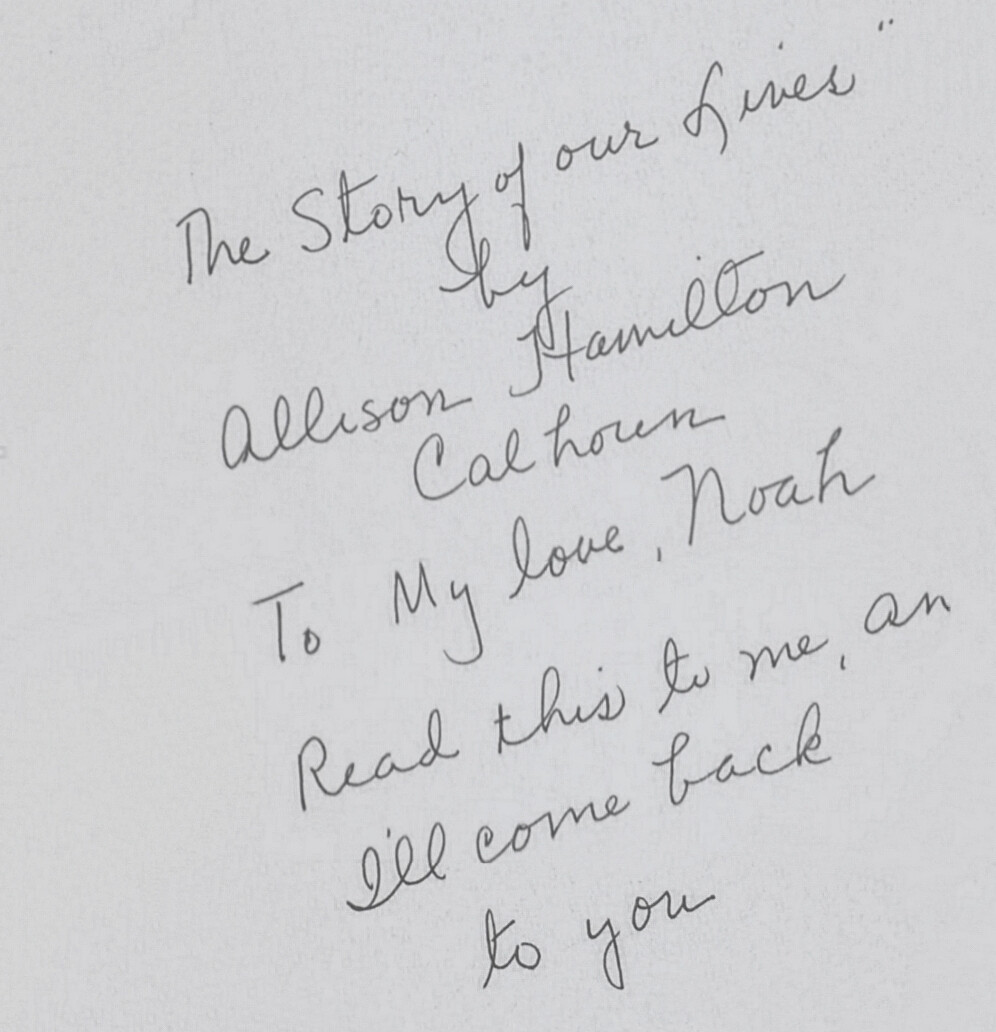 The Story of our Lives"
by
Allison Hamilton
Calhoun
To My love, Noah
Read this to me, an
I'll come back
to you